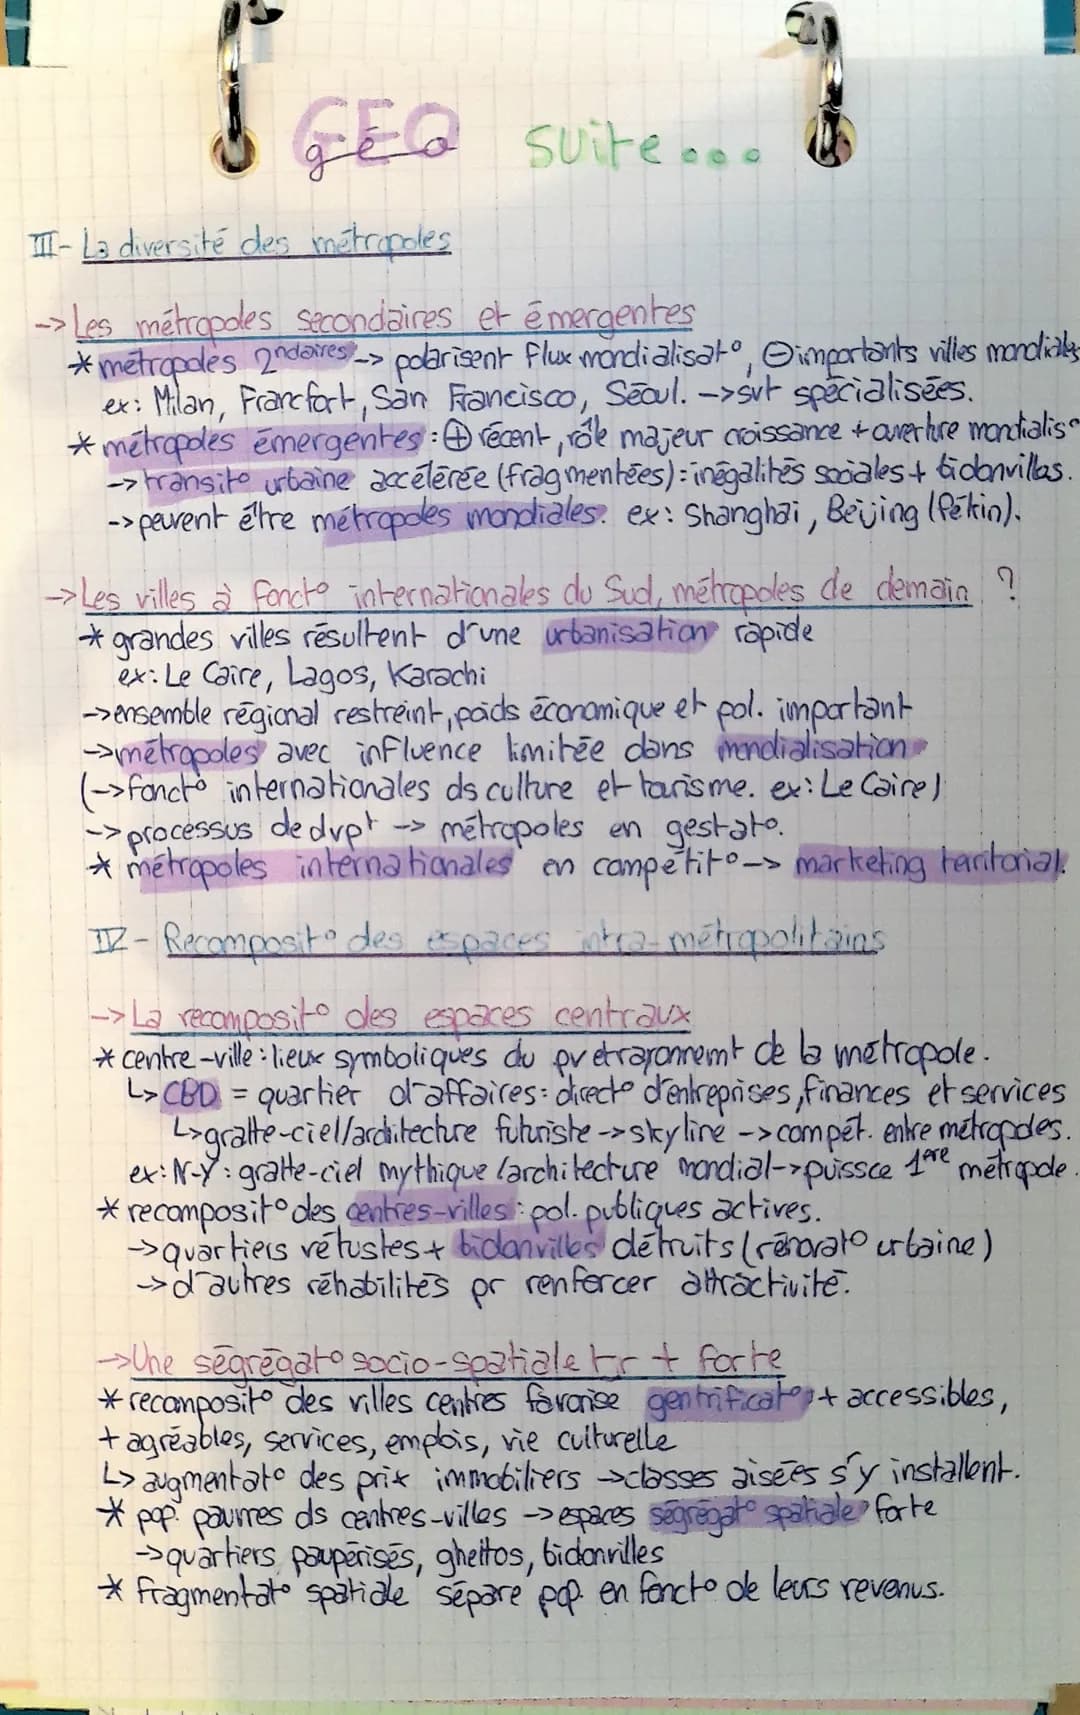 GEO géo suite...
III- La diversité des métropoles
-> Les métropoles secondaires et émergentes
* métropoles 2ndaires -> polarisent flux mondialisat°, ⊖importants villes mondiales
ex: Milan, Francfort, San Francisco, Séoul. -> svt spécialisées.
* métropoles émergentes : ⊕ récent, rôle majeur croissance + ouverture mondialis°
-> transit° urbaine accélérée (fragmentées) : inégalités sociales + bidonvilles.
-> peuvent être métropoles mondiales. ex: Shanghai, Beijing (Pékin).
-> Les villes à fonct° internationales du Sud, métropoles de demain ?
* grandes villes résultent d'une urbanisation rapide
ex: Le Caire, Lagos, Karachi
-> ensemble régional restreint, poids économique et pol. important
-> métropoles avec influence limitée dans mondialisation
(-> fonct° internationales ds culture et tourisme. ex: Le Caire)
-> processus de dvpt -> métropoles en gestat°.
* métropoles internationales en compétit° -> marketing territorial.
IV- Recomposit° des espaces intra-métropolitains
-> La recomposit° des espaces centraux
* centre-ville : lieux symboliques du pv et rayonnemt de la métropole.
↳ CBD = quartier d'affaires : direct° d'entreprises, finances et services
↳ gratte-ciel/architecture futuriste -> skyline -> compét. entre métropoles.
ex: N-Y : gratte-ciel mythique/architecture mondial -> puissce 1ère métropole.
* recomposit° des centres-villes : pol. publiques actives.
-> quartiers vétustes + bidonvilles détruits (rénovat° urbaine)
-> d'autres réhabilités pr renforcer attractivité.
-> Une ségrégat° socio-spatiale tjr + forte
* recomposit° des villes centres favorise gentrificat° : + accessibles,
+ agréables, services, emplois, vie culturelle
↳ augmentat° des prix immobiliers -> classes aisées s'y installent.
* pop. pauvres ds centres-villes -> espaces ségrégat° spatiale forte
-> quartiers paupérisés, ghettos, bidonvilles
* fragmentat° spatiale sépare pop. en fonct° de leurs revenus.